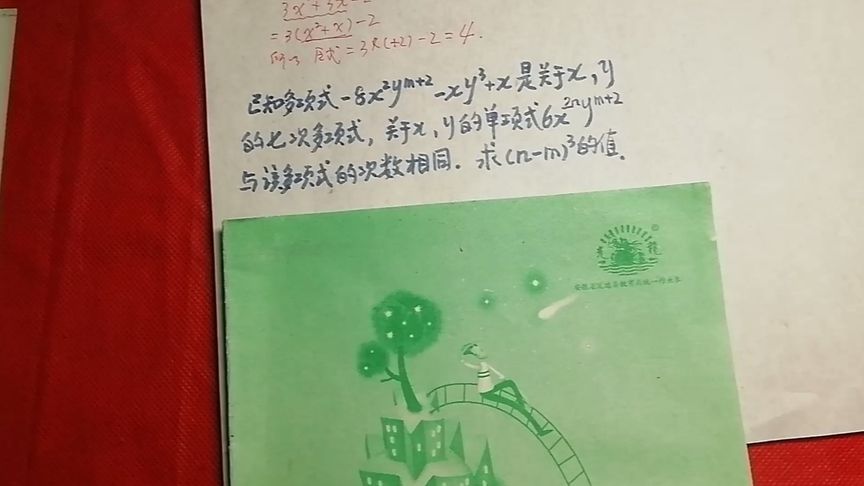 3x²+3x-2
=3(x²+x)-2
=3×(+2)-2=4.
已知多项式-8x²yᵐ⁺²-xy³+x是关于x,y
的七次多项式,关于x,y的单项式6x²ⁿyᵐ⁺²
与该多项式的次数相同.求(n-m)³的值.